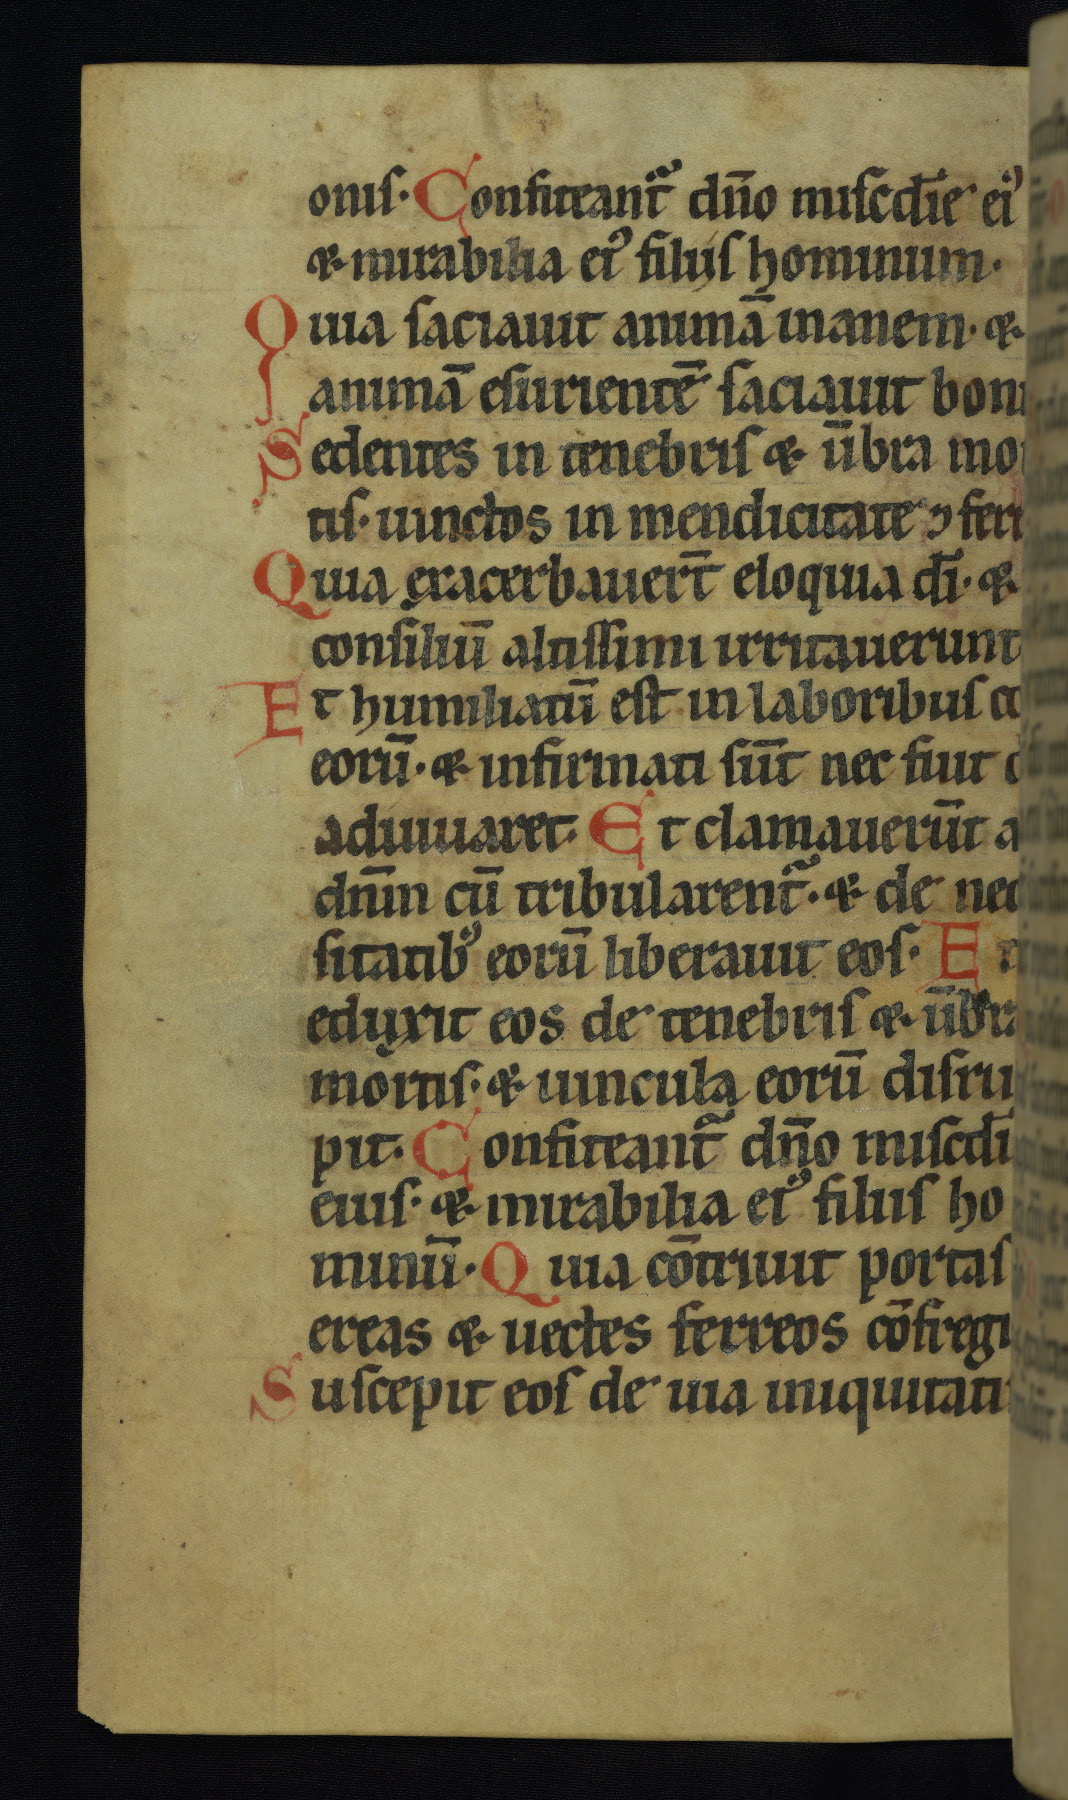 onis. Confiteant᷑ dn̄o miscd̄ie ei᷒
& mirabilia ei᷒ filijs hominum.
Quia saciauit animā inanem. &
animā esurientē saciauit boni
Sedentes in tenebris & ūbra mor
tis. uinctos in mendicitate ⁊ ferr
Quia exacerbauer̄t eloquia dī. &
consiliū altissimi irritauerunt
Et humiliatū est in laboribus co
eorū. & infirmati sūt nec fuit
adiuuaret. Et clamauerūt a
dnm̄ cū tribularent᷑. & de nec
sitatib᷒ eorū liberauit eos. Et
eduxit eos de tenebris & ūbra
mortis. & uincula eorū disru
pit. Confiteant᷑ dn̄o miscdī
eius. & mirabilia ei᷒ filiis ho
minū. Quia cōtriuit portas
ereas & uectes ferreos cōfregi
Suscepit eos de uia iniquitati